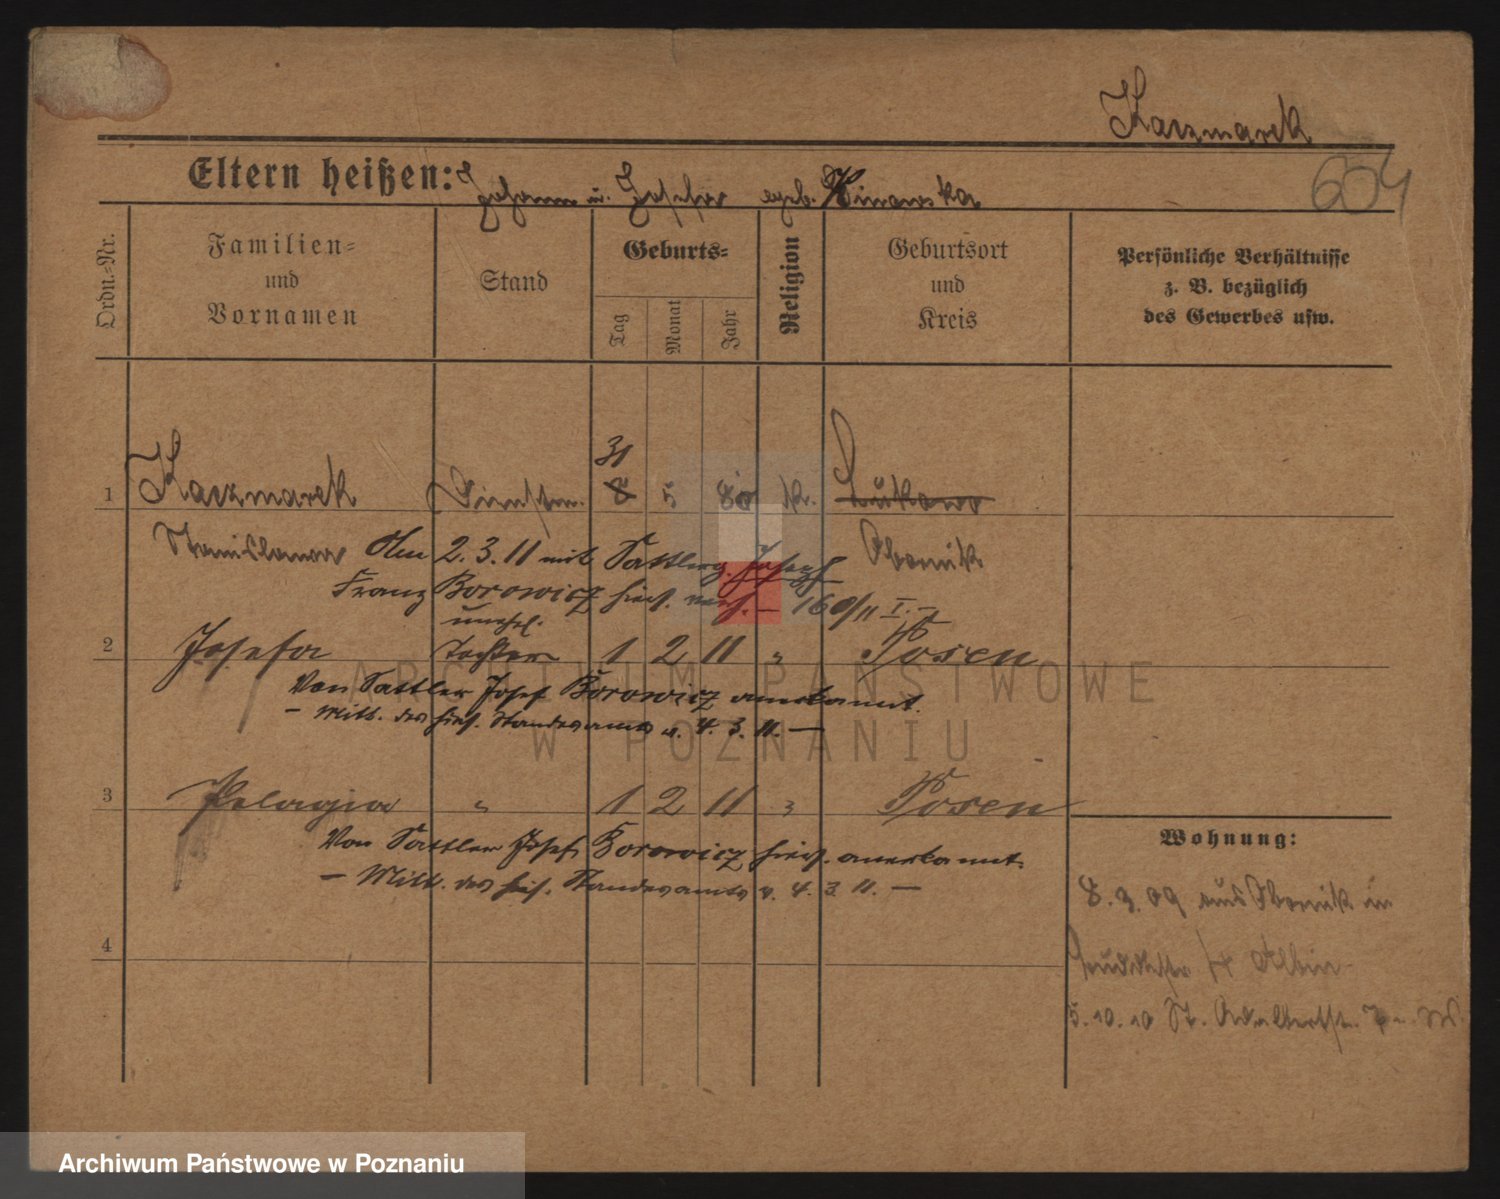 Kaczmarek
604
Eltern heißen: Johann u. Josefa geb. Winowska
Ordn.-Nr.
Familien-
und
Vornamen
Stand
Geburts-
Tag
Monat
Jahr
Religion
Geburtsort
und
Kreis
Persönliche Verhältnisse
z. B. bezüglich
des Gewerbes usw.
31
1 Kaczmarek Dienstm. 8 5 80 K. Lukowo
Stanislawa Am 2.3.11 mit Sattlerg. Joseph Obornik
Franz Borowicz hies. verh. — 160/11 I. —
unehel.
2 Josefa Tochter 1 2 11 " Posen
Von Sattler Josef Borowicz anerkannt.
— Mitt. des hies. Standesamts v. 4. 3. 11. —
3 Pelagia " 1 2 11 " Posen
Von Sattler Josef Borowicz hies. anerkannt.
— Mitt. des hies. Standesamts v. 4. 3. 11. —
4
Wohnung:
8.3.09 aus Obornik in
4 Albin
5.10.10 St. Adalbertstr.
ARCHIWUM PAŃSTWOWE
W POZNANIU
Archiwum Państwowe w Poznaniu